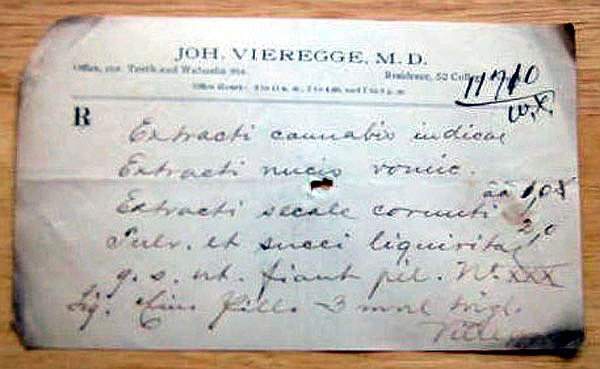 JOH. VIEREGGE, M. D.
Office, cor. Tenth and Wabasha sts. Residence, 52
Office Hours:
11710
w.x.
R
Extracti cannabis indicae
Extracti nucis vomic.
Extracti secale cornuti āā 1,0
Pulv. et succi liquirita 2,0
q. s. ut. fiant pil. No. XXX
Sig. Pills 3 mal tägl.